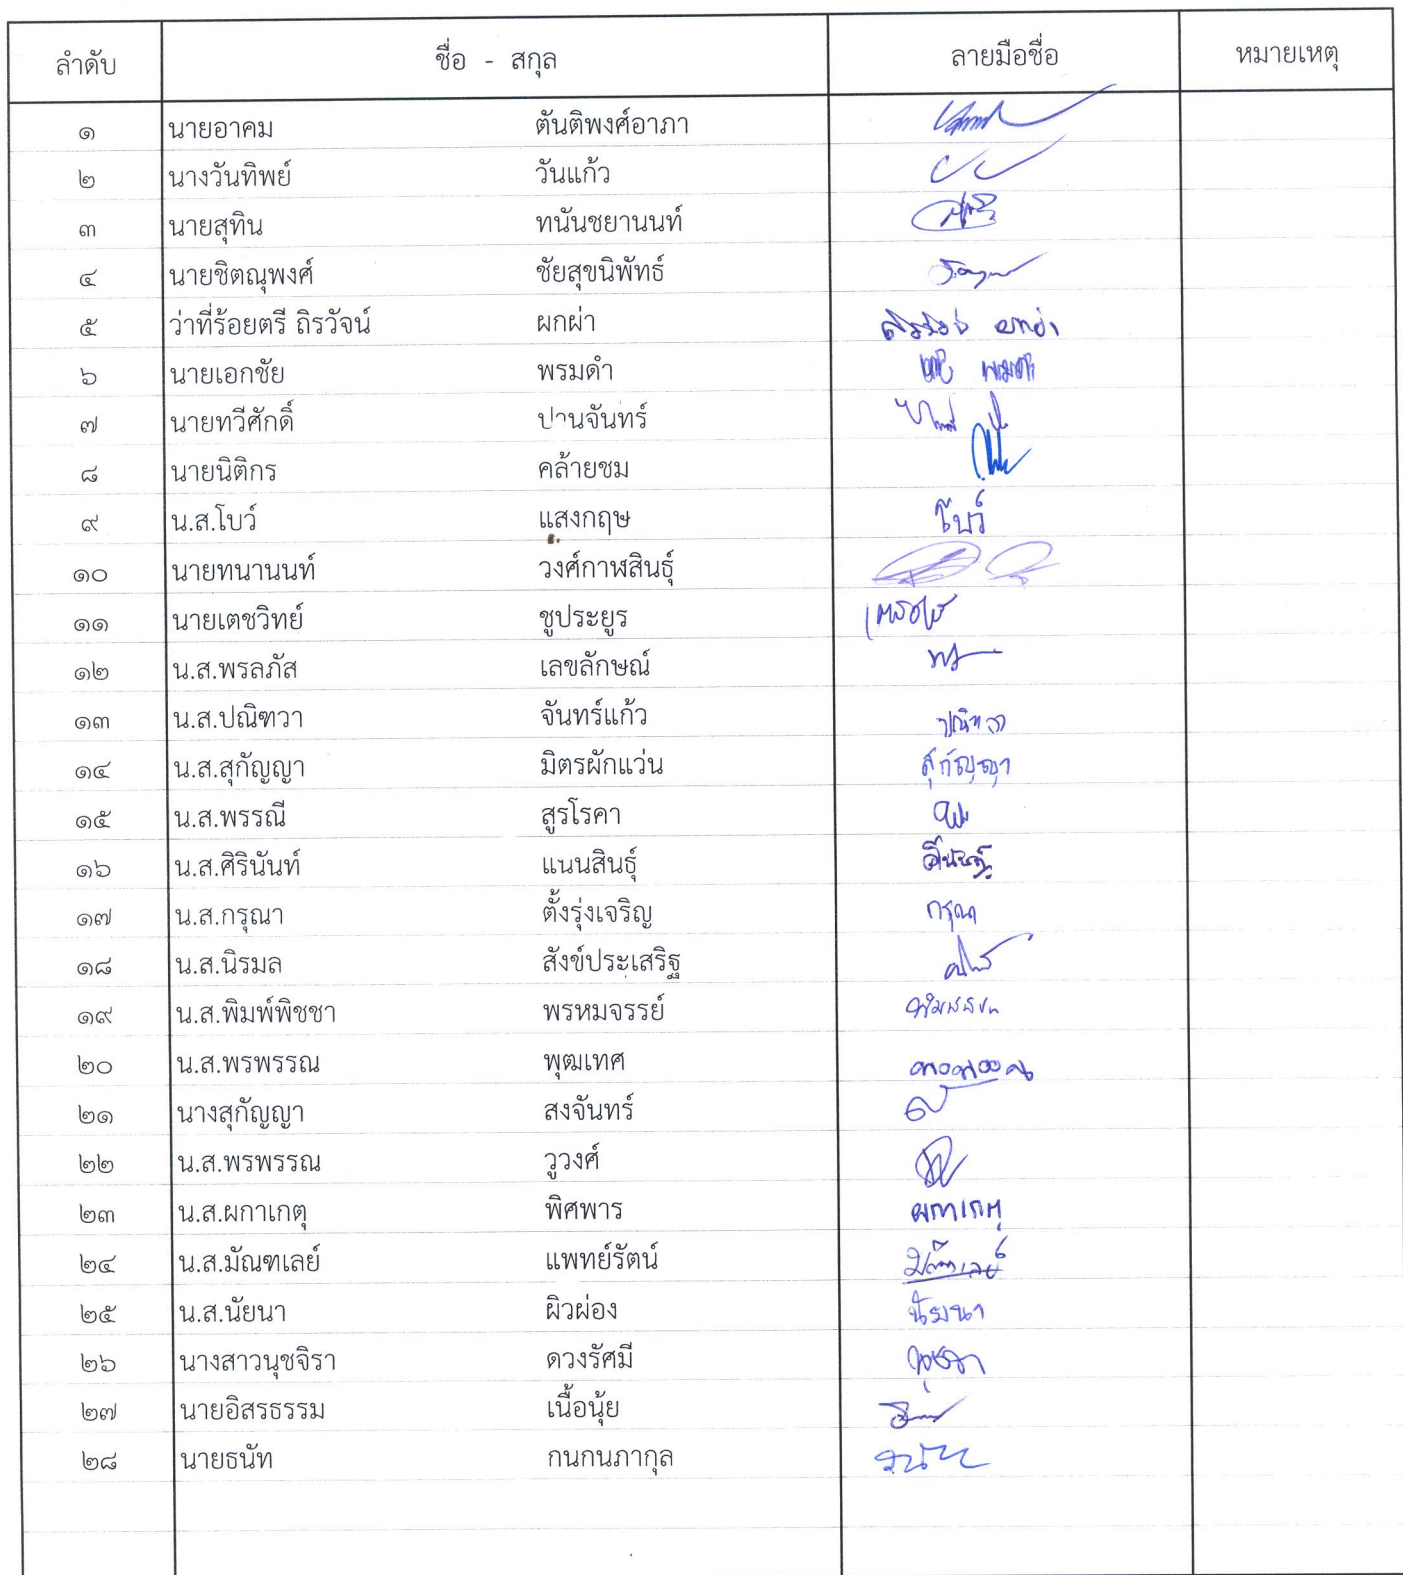 ลำดับ ชื่อ - สกุล ลายมือชื่อ หมายเหตุ
๑ นายอาคม ตันติพงศ์อาภา
๒ นางวันทิพย์ วันแก้ว
๓ นายสุทิน ทนันชยานนท์
๔ นายชิตณุพงศ์ ชัยสุขนิพัทธ์
๕ ว่าที่ร้อยตรี ถิรวัจน์ ผกผ่า
๖ นายเอกชัย พรมดำ
๗ นายทวีศักดิ์ ปานจันทร์
๘ นายนิติกร คล้ายชม
๙ น.ส.โบว์ แสงกฤษ โบว์
๑๐ นายทนานนท์ วงศ์กาฬสินธุ์
๑๑ นายเตชวิทย์ ชูประยูร
๑๒ น.ส.พรลภัส เลขลักษณ์
๑๓ น.ส.ปณิฑวา จันทร์แก้ว
๑๔ น.ส.สุกัญญา มิตรผักแว่น สุกัญญา
๑๕ น.ส.พรรณี สูรโรคา
๑๖ น.ส.ศิรินันท์ แนนสินธุ์
๑๗ น.ส.กรุณา ตั้งรุ่งเจริญ กรุณา
๑๘ น.ส.นิรมล สังข์ประเสริฐ
๑๙ น.ส.พิมพ์พิชชา พรหมจรรย์
๒๐ น.ส.พรพรรณ พุฒเทศ
๒๑ นางสุกัญญา สงจันทร์
๒๒ น.ส.พรพรรณ วูวงศ์
๒๓ น.ส.ผกาเกตุ พิศพาร ผกาเกตุ
๒๔ น.ส.มัณฑเลย์ แพทย์รัตน์
๒๕ น.ส.นัยนา ผิวผ่อง นัยนา
๒๖ นางสาวนุชจิรา ดวงรัศมี
๒๗ นายอิสรธรรม เนื้อนุ้ย
๒๘ นายธนัท กนกนภากุล